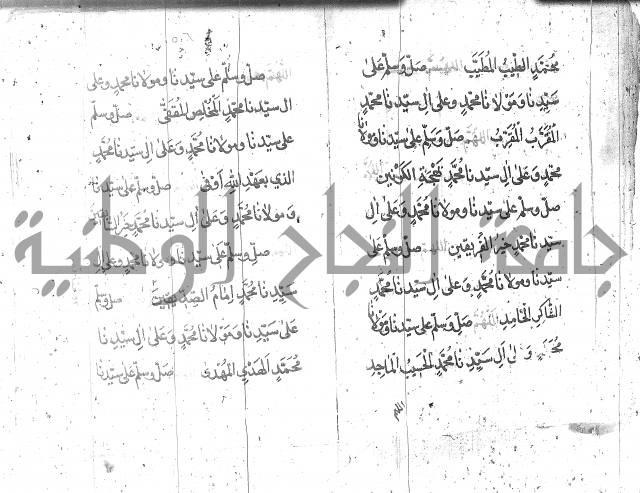 محمد الطيب المطيب اللهم صل وسلم على
سيدنا ومولانا محمد وعلى ال سيدنا محمد
المقرب المقرب اللهم صل وسلم على سيدنا ومولانا
محمد وعلى ال سيدنا محمد الكونين اللهم
صل وسلم على سيدنا ومولانا محمد وعلى ال
سيدنا محمد خير الفريقين اللهم صل وسلم على
سيدنا ومولانا محمد وعلى ال سيدنا محمد
الحامد اللهم صل وسلم على سيدنا ومولانا
محمد وعلى ال سيدنا محمد الحسيب الماجد
اللهم
اللهم صل وسلم على سيدنا ومولانا محمد وعلى
ال سيدنا محمد المخلص صل وسلم
على سيدنا ومولانا محمد وعلى ال سيدنا محمد
الذي بعهد الله اوفى صل وسلم على سيدنا
ومولانا محمد وعلى ال سيدنا محمد خير
صل وسلم على سيدنا ومولانا محمد وعلى ال
سيدنا محمد امام صل وسلم
على سيدنا ومولانا محمد وعلى ال سيدنا
محمد الهدى المهدى صل وسلم على سيدنا
جامعة النجاح الوطنية